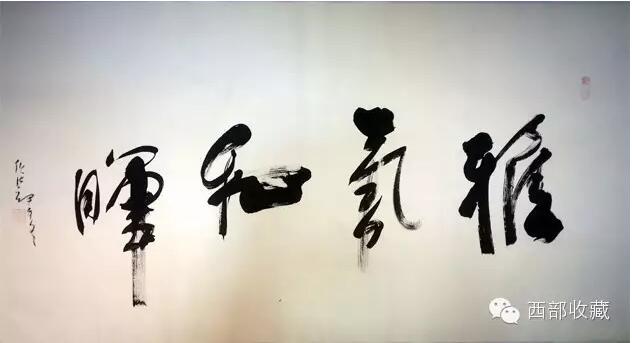 雅氣和暉
西部收藏